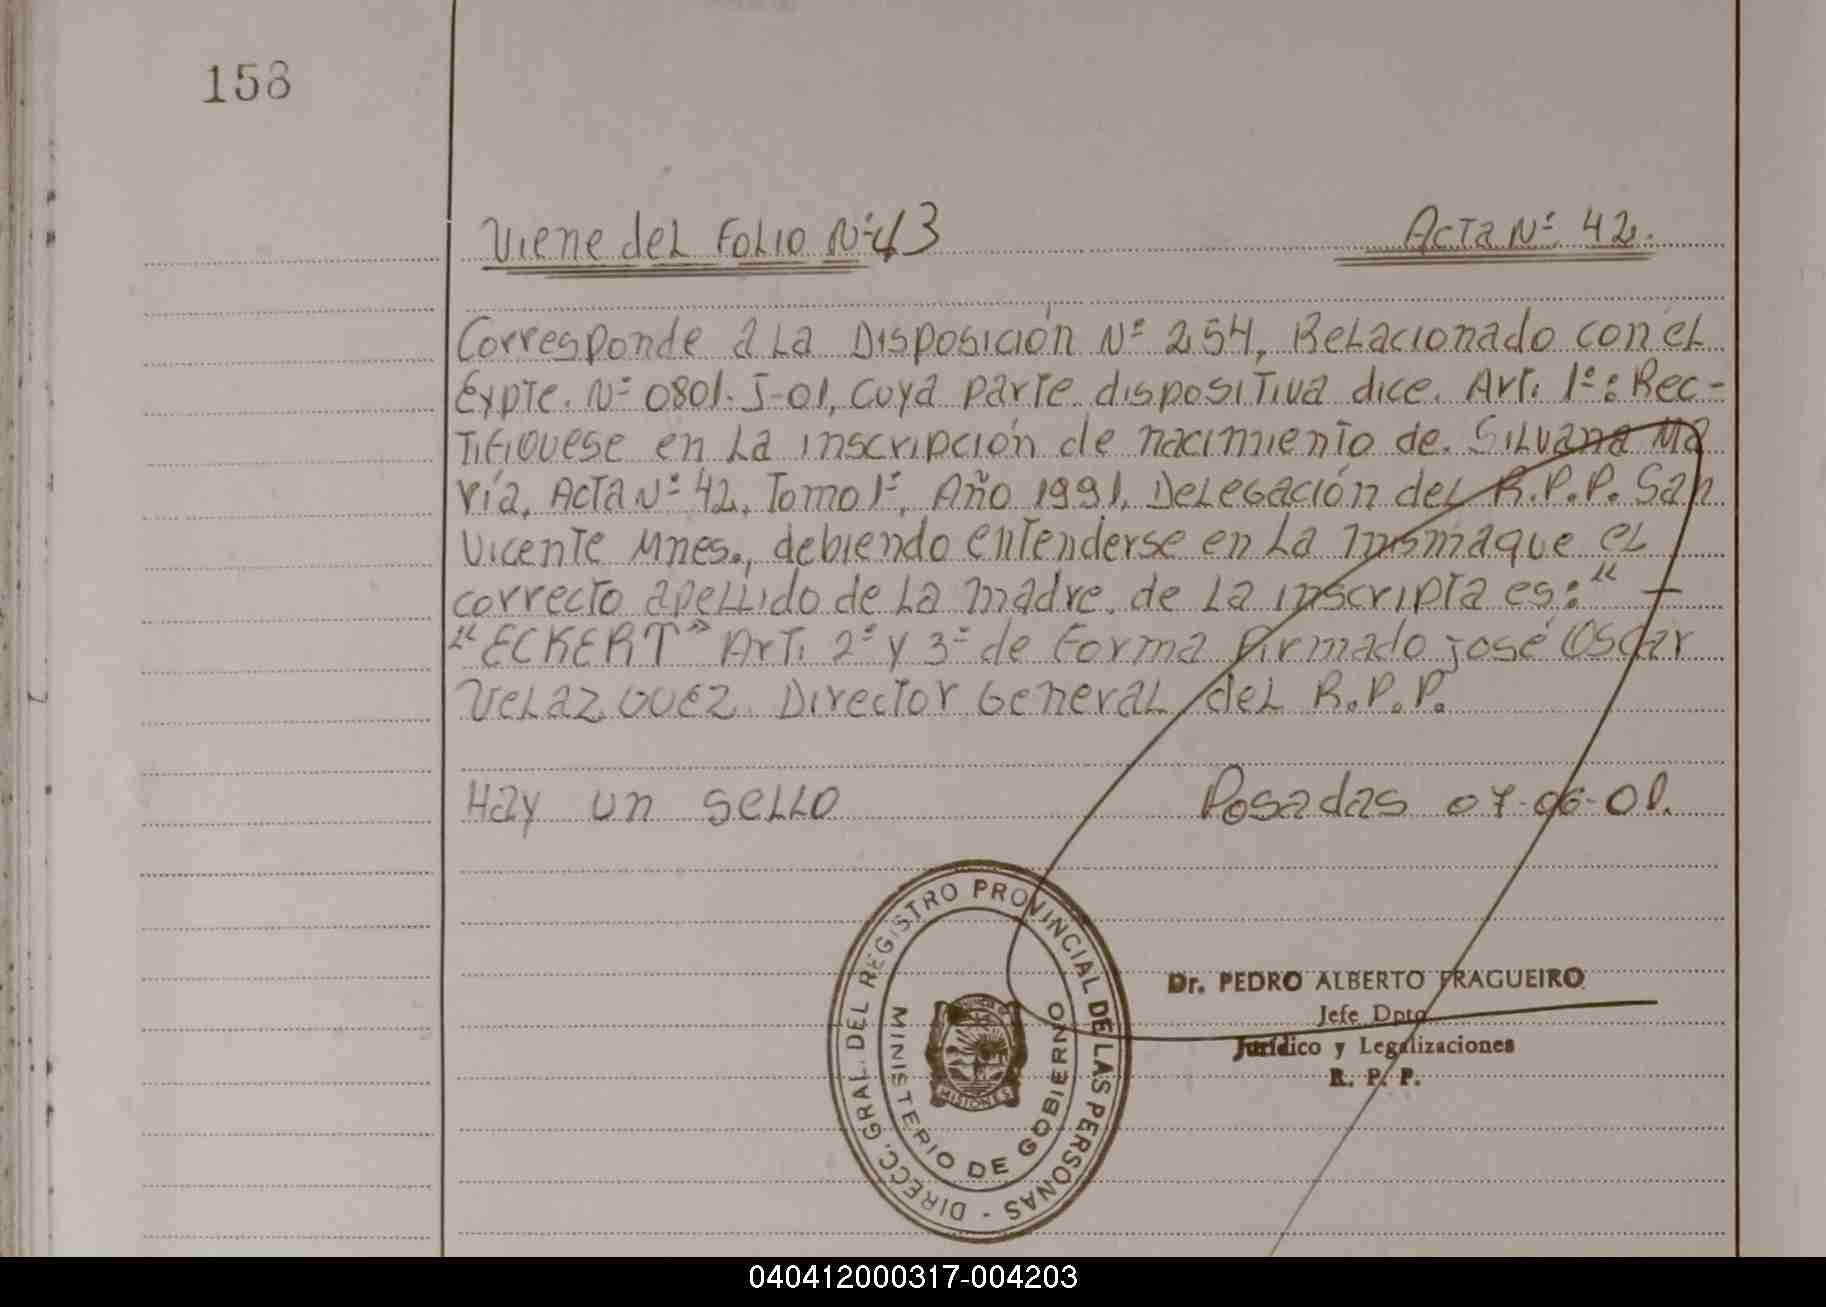 158
Viene del Folio Nº 43
Acta Nº 42.
Corresponde a La Disposición Nº 254, Relacionado con el
Expte. Nº 0801-J-01, cuya parte dispositiva dice. Art. 1º: Rec-
Tifiquese en La inscripción de nacimiento de Silvana Ma
ría, Acta Nº 42, Tomo 1º, Año 1991, Delegación del R.P.P. San
Vicente Mnes., debiendo entenderse en La misma que el
correcto apellido de La madre de La inscripta es: " -
"ECKERT" Art. 2º y 3º de Forma Firmado José Oscar
Velazquez Director General del R.P.P.
Hay un sello
Posadas 07-06-01.
DIRECC. GRAL. DEL REGISTRO PROVINCIAL DE LAS PERSONAS -
MINISTERIO DE GOBIERNO
MISIONES
Dr. PEDRO ALBERTO FRAGUEIRO
Jefe Dpto
Jurídico y Legalizaciones
R. P. P.
040412000317-004203